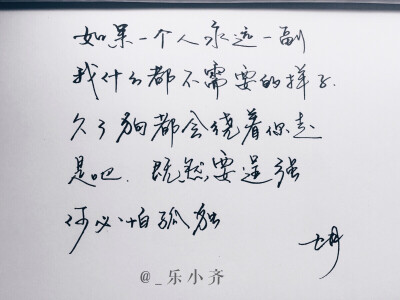 如果一个人永远一副
我什么都不需要的样子.
久了狗都会绕着你走
是吧. 既然要逞强
何必怕孤独
@_乐小齐